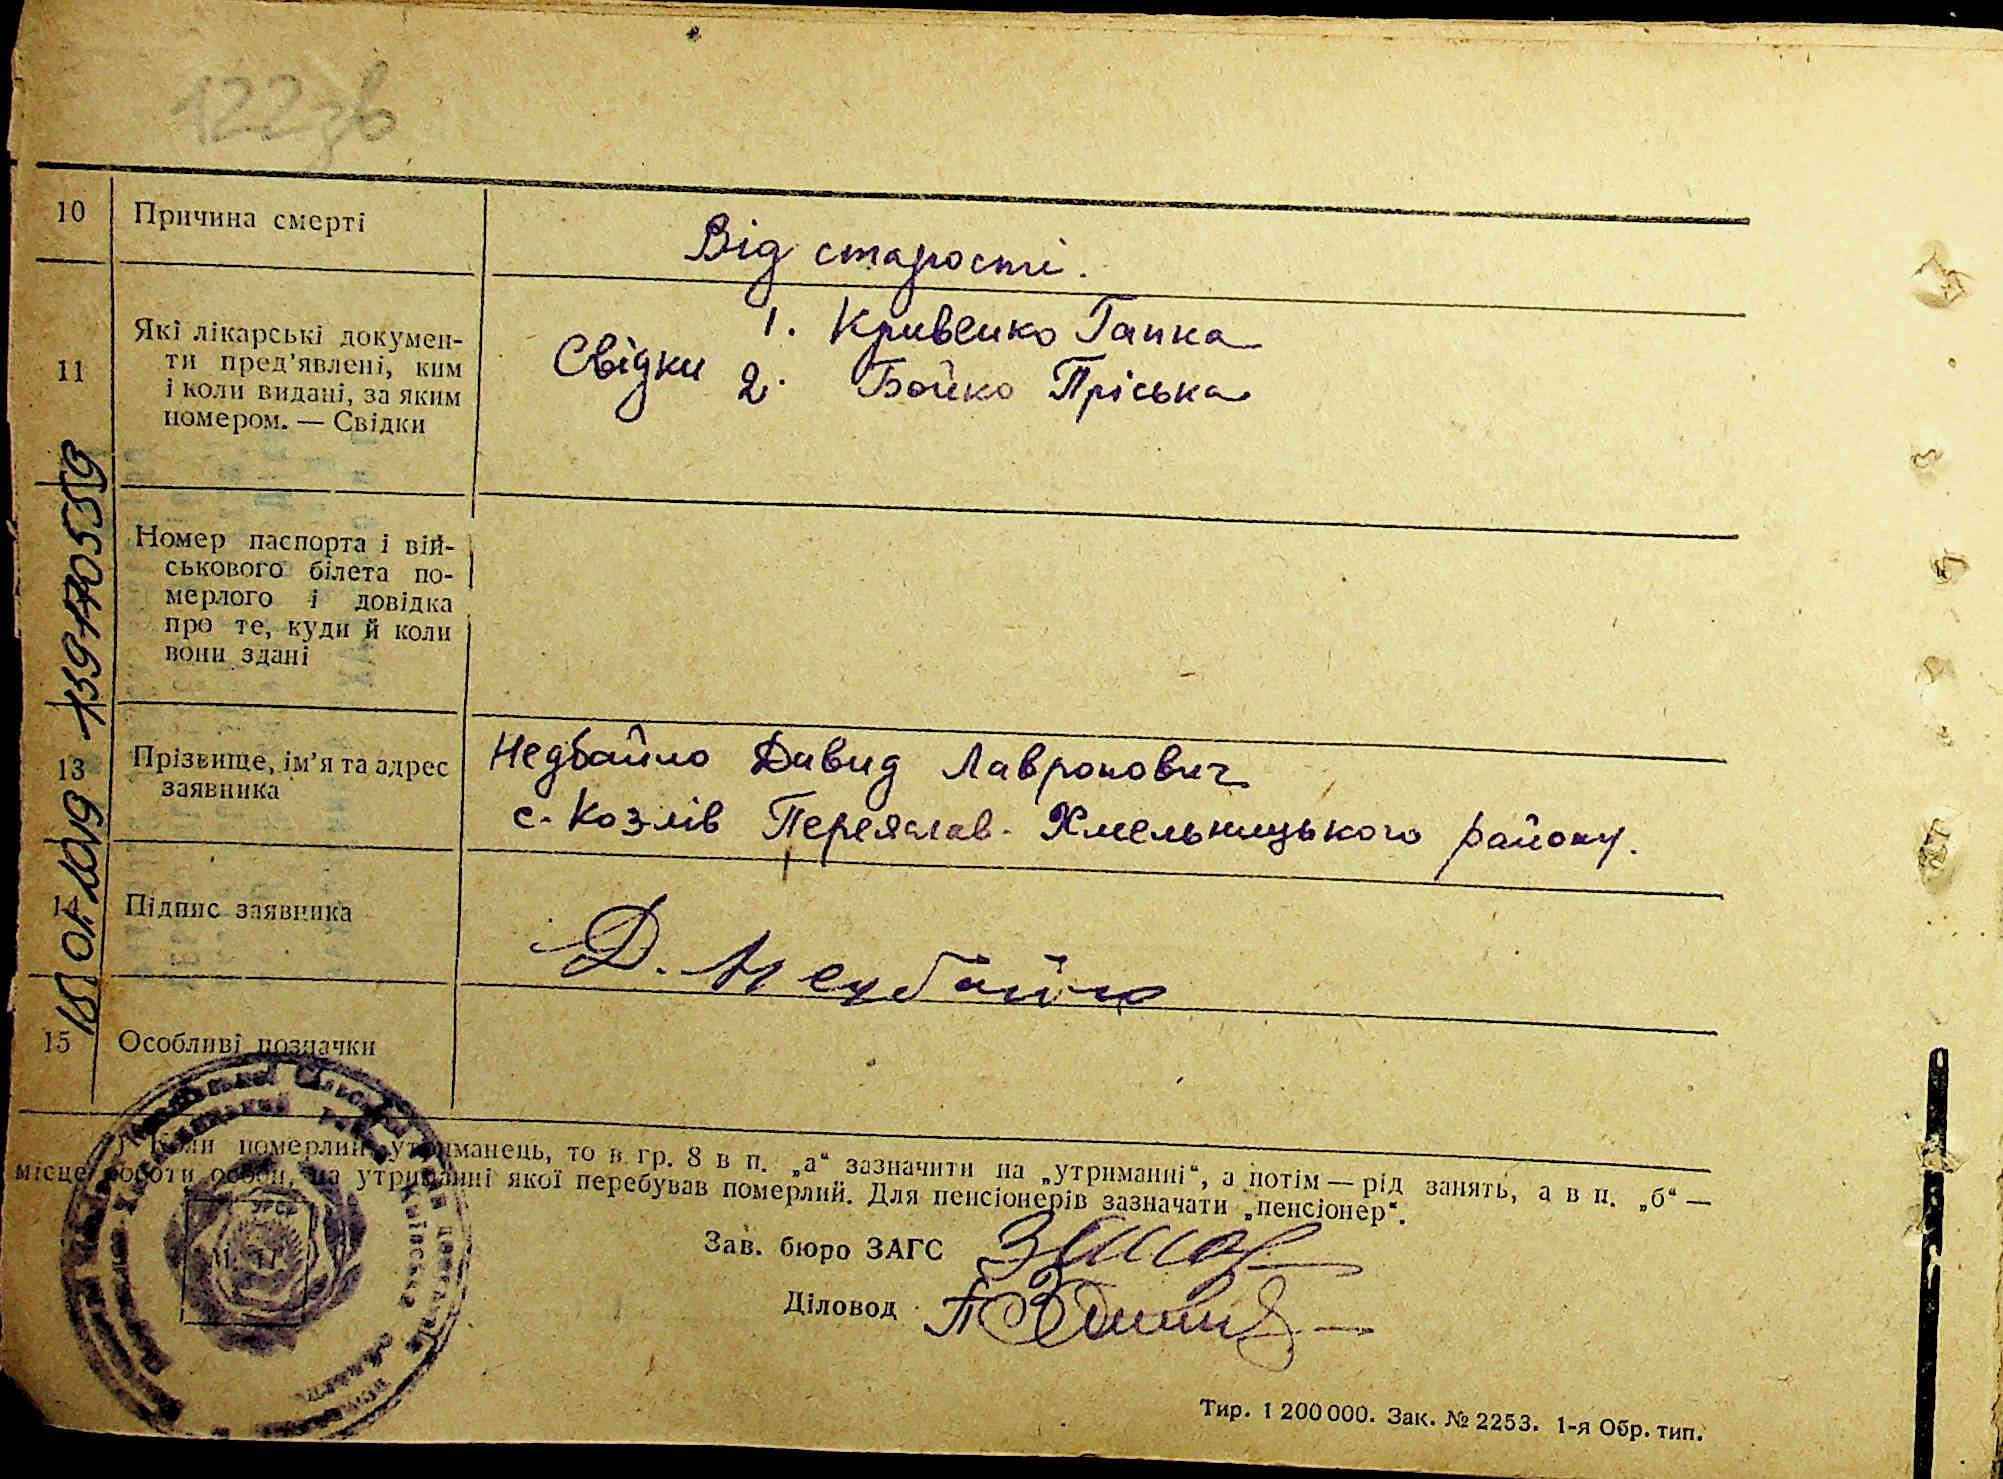 122зв
10 Причина смерті
Від старості.
11 Які лікарські докумен-
ти пред'явлені, ким
і коли видані, за яким
номером. — Свідки
Свідки 1. Кривенко Гапка
2. Бойко Пріська
Номер паспорта і вій-
ськового білета по-
мерлого і довідка
про те, куди й коли
вони здані
13 Прізвище, ім'я та адрес
заявника
Недбайло Давид Лавронович
с. Козлів Переяслав-Хмельницького району.
14 Підпис заявника
Д. Недбайло
15 Особливі позначки
Коли померлий утриманець, то в гр. 8 в п. „а“ зазначити на „утриманні“, а потім — рід занять, а в п. „б“ —
місце роботи особи, на утриманні якої перебував померлий. Для пенсіонерів зазначати „пенсіонер“.
Зав. бюро ЗАГС
Діловод
УРСР
Тир. 1 200 000. Зак. № 2253. 1-я Обр. тип.